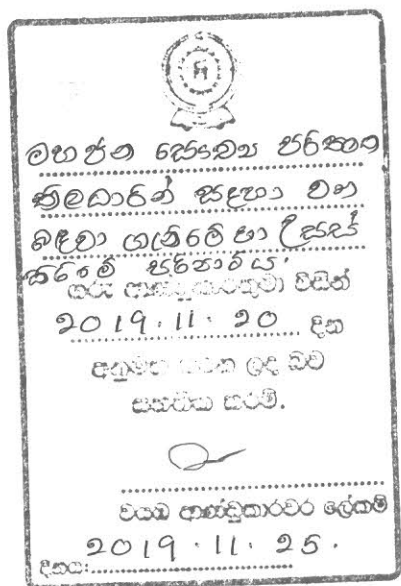 මහජන සෞඛ්‍ය පරීක්ෂණ
නිලධාරින් සඳහා වන
බඳවා ගැනීමේ හා උසස්
කිරීමේ පරිපාටිය.
ගරු ආණ්ඩුකාරතුමා විසින්
2019.11.20 දින
අනුමත කරන ලද බව
සහතික කරමි.
වයඹ ආණ්ඩුකාරවර ලේකම්
දිනය: 2019.11.25.